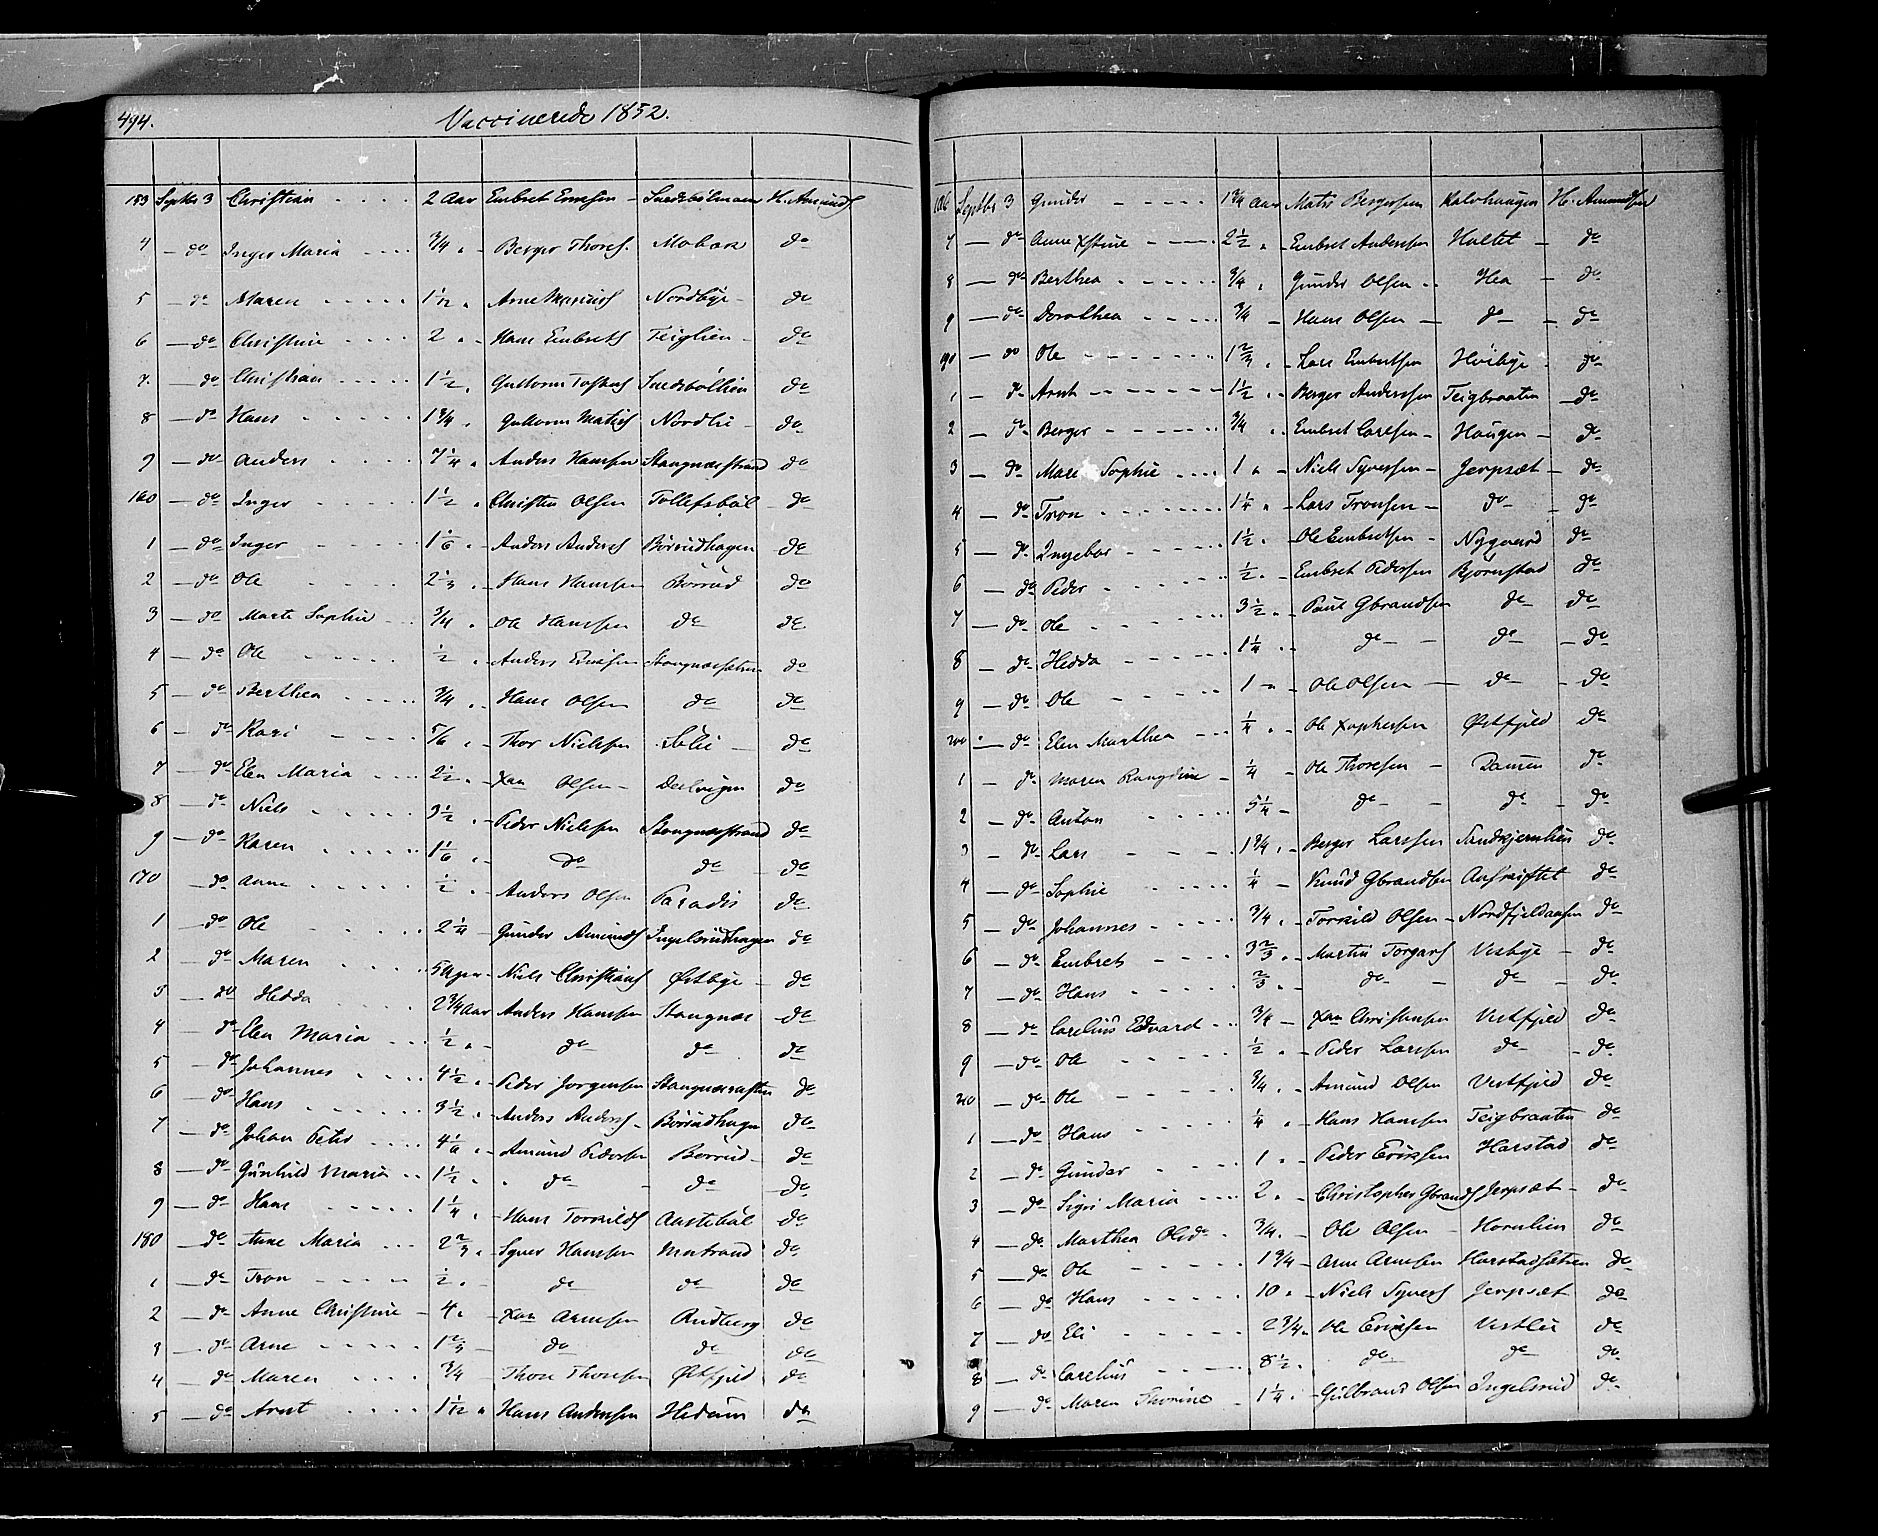 494.
Vaccinerede 1852.
153 Septbr 3 Christian 2 Aar Embret H. Amunds
4 - do Inger Maria 3/4 Berger Thores. Mobæk do
5 - do Maren 1 1/12 Arne Nordbye do
6 - do Christine 2 Hans Embrets Teiglien do
7. - do Christian 1 1/2 Guttorm do
8 - do Hans 1 3/4 Guttorm Nordlie do
9 - do Anders 7 1/4 Anders Hansen Stangnæsstrand do
160 - do Inger 1 1/2 Christen Olsen Tollefsbøl do
1 - do Inger 1 1/6 Anders Anders Børrudhagen do
2 - do Ole 2 1/3 Hans Hansen Børrud do
3 - do Marte Sophie 3/4 Ole Hansen do do
4 - do Ole 1/2 Anders Stangnæssætren do
5 - do Berthea 3/4 Hans Olsen do do
6 - do Kari 5/6 Thor Nielsen Lølie do
7 - do Elen Maria 2 1/2 Xan Olsen do
8 - do Niels 3 1/2 Peder Nielsen Stangnæsstrand do
9 - do Karen 1 1/6 do do do
170 - do Anne 1/2 Anders Olsen Paradis do
1 - do Ole 2 1/4 Gunder Amunds Ingelsrudhagen do
2 - do Maren 5 Niels Christians Østbye do
3 - do Hedda 2 3/4 Aar Anders Hansen Stangnæs do
4 - do Elen Maria 1/2 do do do
5 - do Johannes 4 1/2 Peder Jorgensen do
6 - do Hans 3 1/2 Anders Anders Børrudhagen do
7 - do Johan Peter 4 1/6 Amund Pedersen Børrud do
8 - do Gunhild Maria 1 1/2 do do do
9 - do Hans 1 1/4 Hans Torkilds Aastebøl do
180 - do Anne Maria 2 2/3 Syver Hansen Matrand do
1 - do Tron 1/2 do do do
2 - do Anne Christine 4 Xan Arnesen Rudberg do
3 - do Arne 1 2/3 do do do
4 - do Maren 3/4 Thore Thoresen Østfjeld do
5 - do Arnt 1 1/12 Hans Andersen do
186 Septbr 3 Gunder 1 3/4 Aar Mats Bergersen Kalvhaugen H. Amundsen
7 - do Anne Xstine 2 1/2 Embret Andersen Holtet do
8 - do Berthea 3/4 Gunder Olsen Hea do
9 - do Dorothea 3/4 Hans Olsen do do
190 - do Ole 1 2/3 Lars Embretsen Høibye do
1 - do Arnt 1 1/2 Berger Andersen Teigbraaten do
2 - do Berger 3/4 Embret Carlsen Haugen do
3 - do Mari Sophie 1 Niels Syversen Jerpsæt do
4 - do Tron 1 1/4 Lars Tronsen do do
5 - do Ingebor 1 1/2 Ole Embretsen Nygaard do
6 - do Peder 1/2 Embret Pedersen Bjørnstad do
7 - do Ole 3 1/2 Paul Gbrandsen do do
8 - do Hedda 1 1/4 do do do
9 - do Ole 1 Ole Olsen do do
200 - do Elen Marthea 1/4 Ole Xophersen Østfjeld do
1 - do Maren Rangdine 1/4 Ole Thoresen Damen do
2 - do Anton 5 1/4 do do do
3 - do Lars 1 3/4 Berger Larssen Sandkjernlien do
4 - do Sophie 1/4 Knud Gbrandsen do
5 - do Johannes 3/4 Torkild Olsen Nordfjeldaasen do
6 - do Embret 3 2/3 Martin Torgars Vestbye do
7 - do Hans 2/3 do do do
8 - do Carelius Edvard 3/4 Xan Christiansen Vestfjeld do
9 - do Ole 1/2 Peder Larssen do do
210 - do Ole 3/4 Amund Olsen Vestfjeld do
1 - do Hans 1/4 Hans Hansen Teigbraaten do
2 - do Gunder 1 Peder Eriksen Harstad do
3 - do Sigri Maria 2 Christopher Gbrands Jerpsæt do
4 - do Marthea 3/4 Ole Olsen Hornlien do
5 - do Ole 1 3/4 Arne Arnesen Harstadsætren do
6 - do Hans 10 Niels Syvers Jerpsæt do
7 - do Eli 2 3/4 Ole Eriksen Vestlie do
8 - do Carelius 8 1/2 do do do
9 - do Maren Thorine 1 1/4 Gulbrand Olsen Ingelsrud do